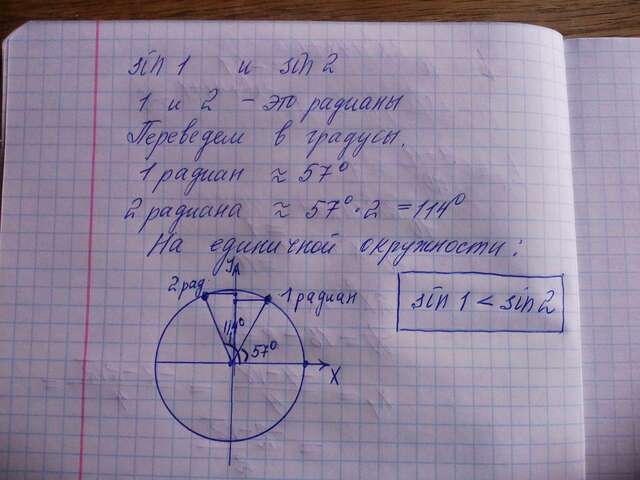 sin 1 и sin 2
1 и 2 – это радианы
Переведем в градусы.
1 радиан ≈ 57°
2 радиана ≈ 57°·2 = 114°
На единичной окружности:
y
2 рад
1 радиан
sin 1 < sin 2
114°
57°
x